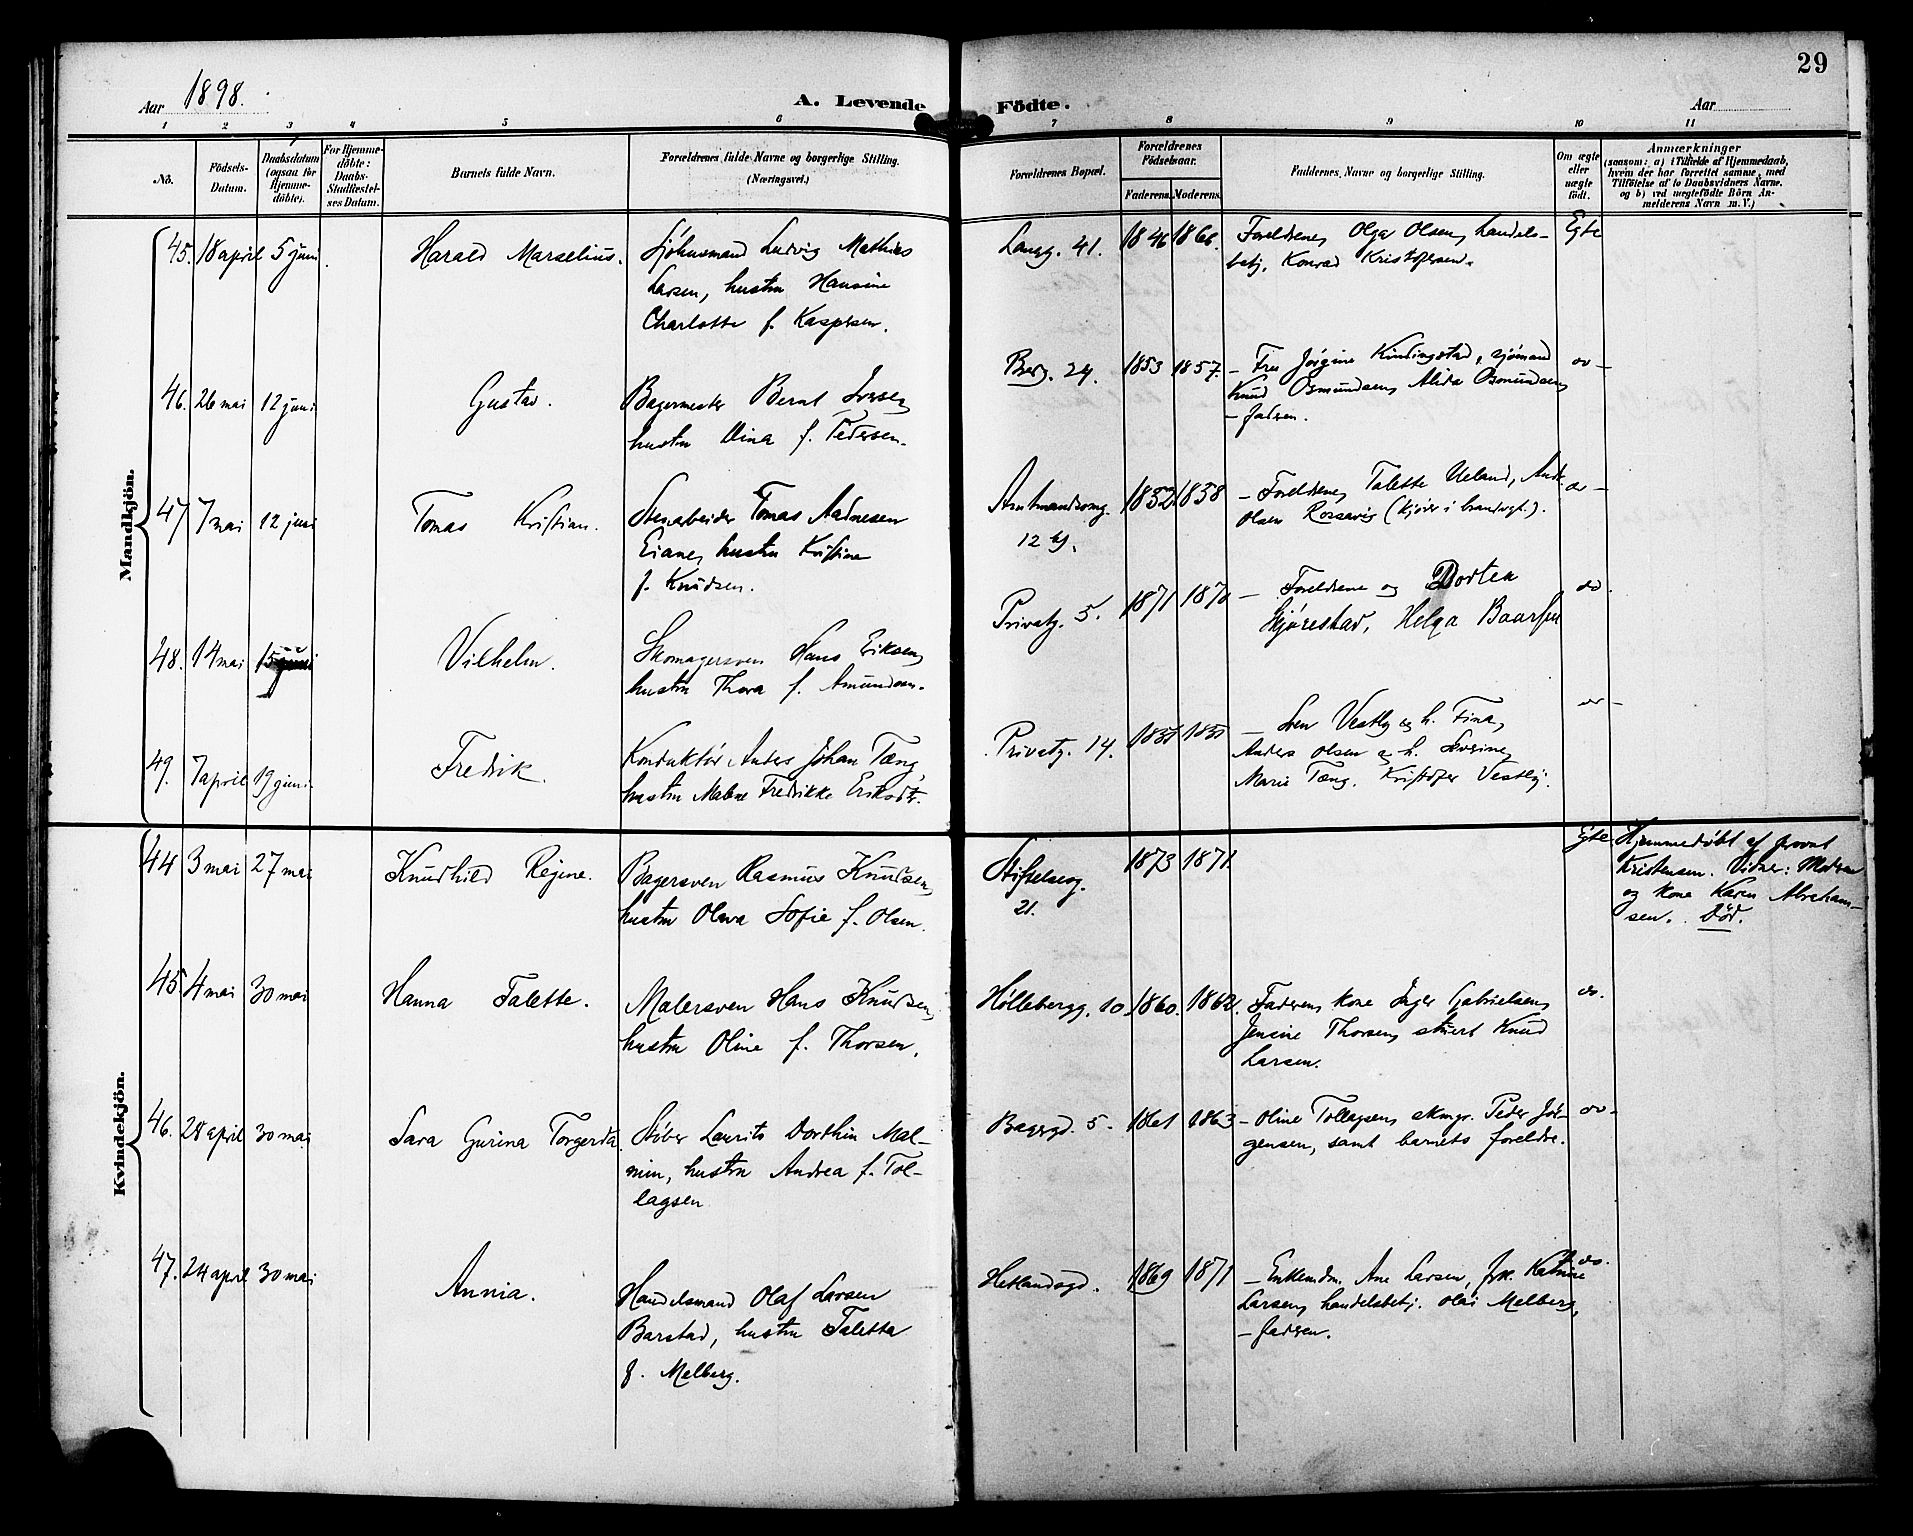 29
Aar 1898.
A. Levende Födte.
Aar
1 2 3 4 5 6 7 8 9 10 11
No.
Födsels-
Datum.
Daabsdatum
(ogsaa for
Hjemme-
døbte).
For Hjemme-
døbte:
Daabs-
Stadfæstel-
ses Datum.
Barnets fulde Navn.
Forældrenes fulde Navne og borgerlige Stilling.
(Næringsvei.)
Forældrenes Bopæl.
Forældrenes
Födselsaar.
Faderens. Moderens.
Faddernes Navne og borgerlige Stilling.
Om ægte
eller
uægte
født.
Anmærkninger
(saasom: a) i Tilfælde af Hjemmedaab,
hvem der har forrettet samme, med
Tilföielse af to Daabsvidners Navne,
og b) ved uægtefödte Börn An-
melderens Navn m. V.)
Mandkjön.
45. 18 april 5 juni. Harald Marselius.
Sjøhusmand Ludvig Mathias
Larsen, hustru Hansine
Charlotte f. Kaspersen.
Langg. 41. 1846 1866.
Foreldrene, Olga Olsen, handels-
betj. Konrad Kristofersen.
Egte
46. 26 mai 12 juni Gustav.
Bagermester Bernt Iversen,
hustru Dina f. Pedersen.
Berg. 24. 1853 1857.
– Fru Jørgine Kindingstad, sjømand
Knud Osmundsen, Alida Osmundsen,
– faderen.
do –
47 7 mai 12 juni Tomas Kristian.
Stenarbeider Tomas Aadnesen
Eiane, hustru Kristine
f. Knudsen.
Amtmandsomg.
12 b). 1852 1858
– Foreldrene, Talette Ueland,
Olsen Rossavig (kjører i brandvgt.).
do –
48. 14 mai 15 juni Vilhelm.
Skomagersven Hans Eriksen,
hustru Thora f. Amundsen.
Privatg. 5. 1871 1870
– Foreldrene og Dortea
Gjørestad, Helga Baarsen
do.
49. 7 april 19 juni. Fredrik.
Konduktør Anders Johan Tæng,
hustru Malene Fredrikke Eriksdtr.
Privatg. 14.
– Sven Vestly og h. Tina,
Anders Olsen og h. Severine,
Marie Tæng. Kristofer Vestly.
do –
Kvindekjön.
44 3 mai 27 mai Knudhild Regine.
Bagersven Rasmus Knudsen,
hustru Olava Sofie f. Olsen.
Stiftelseg.
21. 1873 1871
Egte
Hjemmedøbt af provst
Kristensen. Vidner: Moderen
og kone Karen Abraham-
sen. Död.
45. 4 mai 30 mai Hanna Talette.
Malersven Hans Knudsen,
hustru Oline f. Thorsen.
Høllebergg. 10. 1860. 1862.
Faderen, kone Inger Gabrielsen,
Jensine Thorsen, stuert Knud
Larsen.
do.
46. 28 april 30 mai Sara Gurina Torgerda.
Støber Laurits Dorthin Mal-
min, hustru Andrea f. Tol-
lagsen
Bagergd. 5. 1861 1863
– Oline Tollagsen, skmgr. Peder Jör-
gensen, samt barnets foreldre.
do –
47. 24 april 30 mai Annia.
Handelsmand Olaf Larsen
Barstad, hustru Taletta
f. Melberg.
Hetlandsgd. 1869 1871
– Enkemdm. Ane Larsen, frk. Katrine
Larsen, handelsbetj. Olai Melberg,
– faderen.
do.